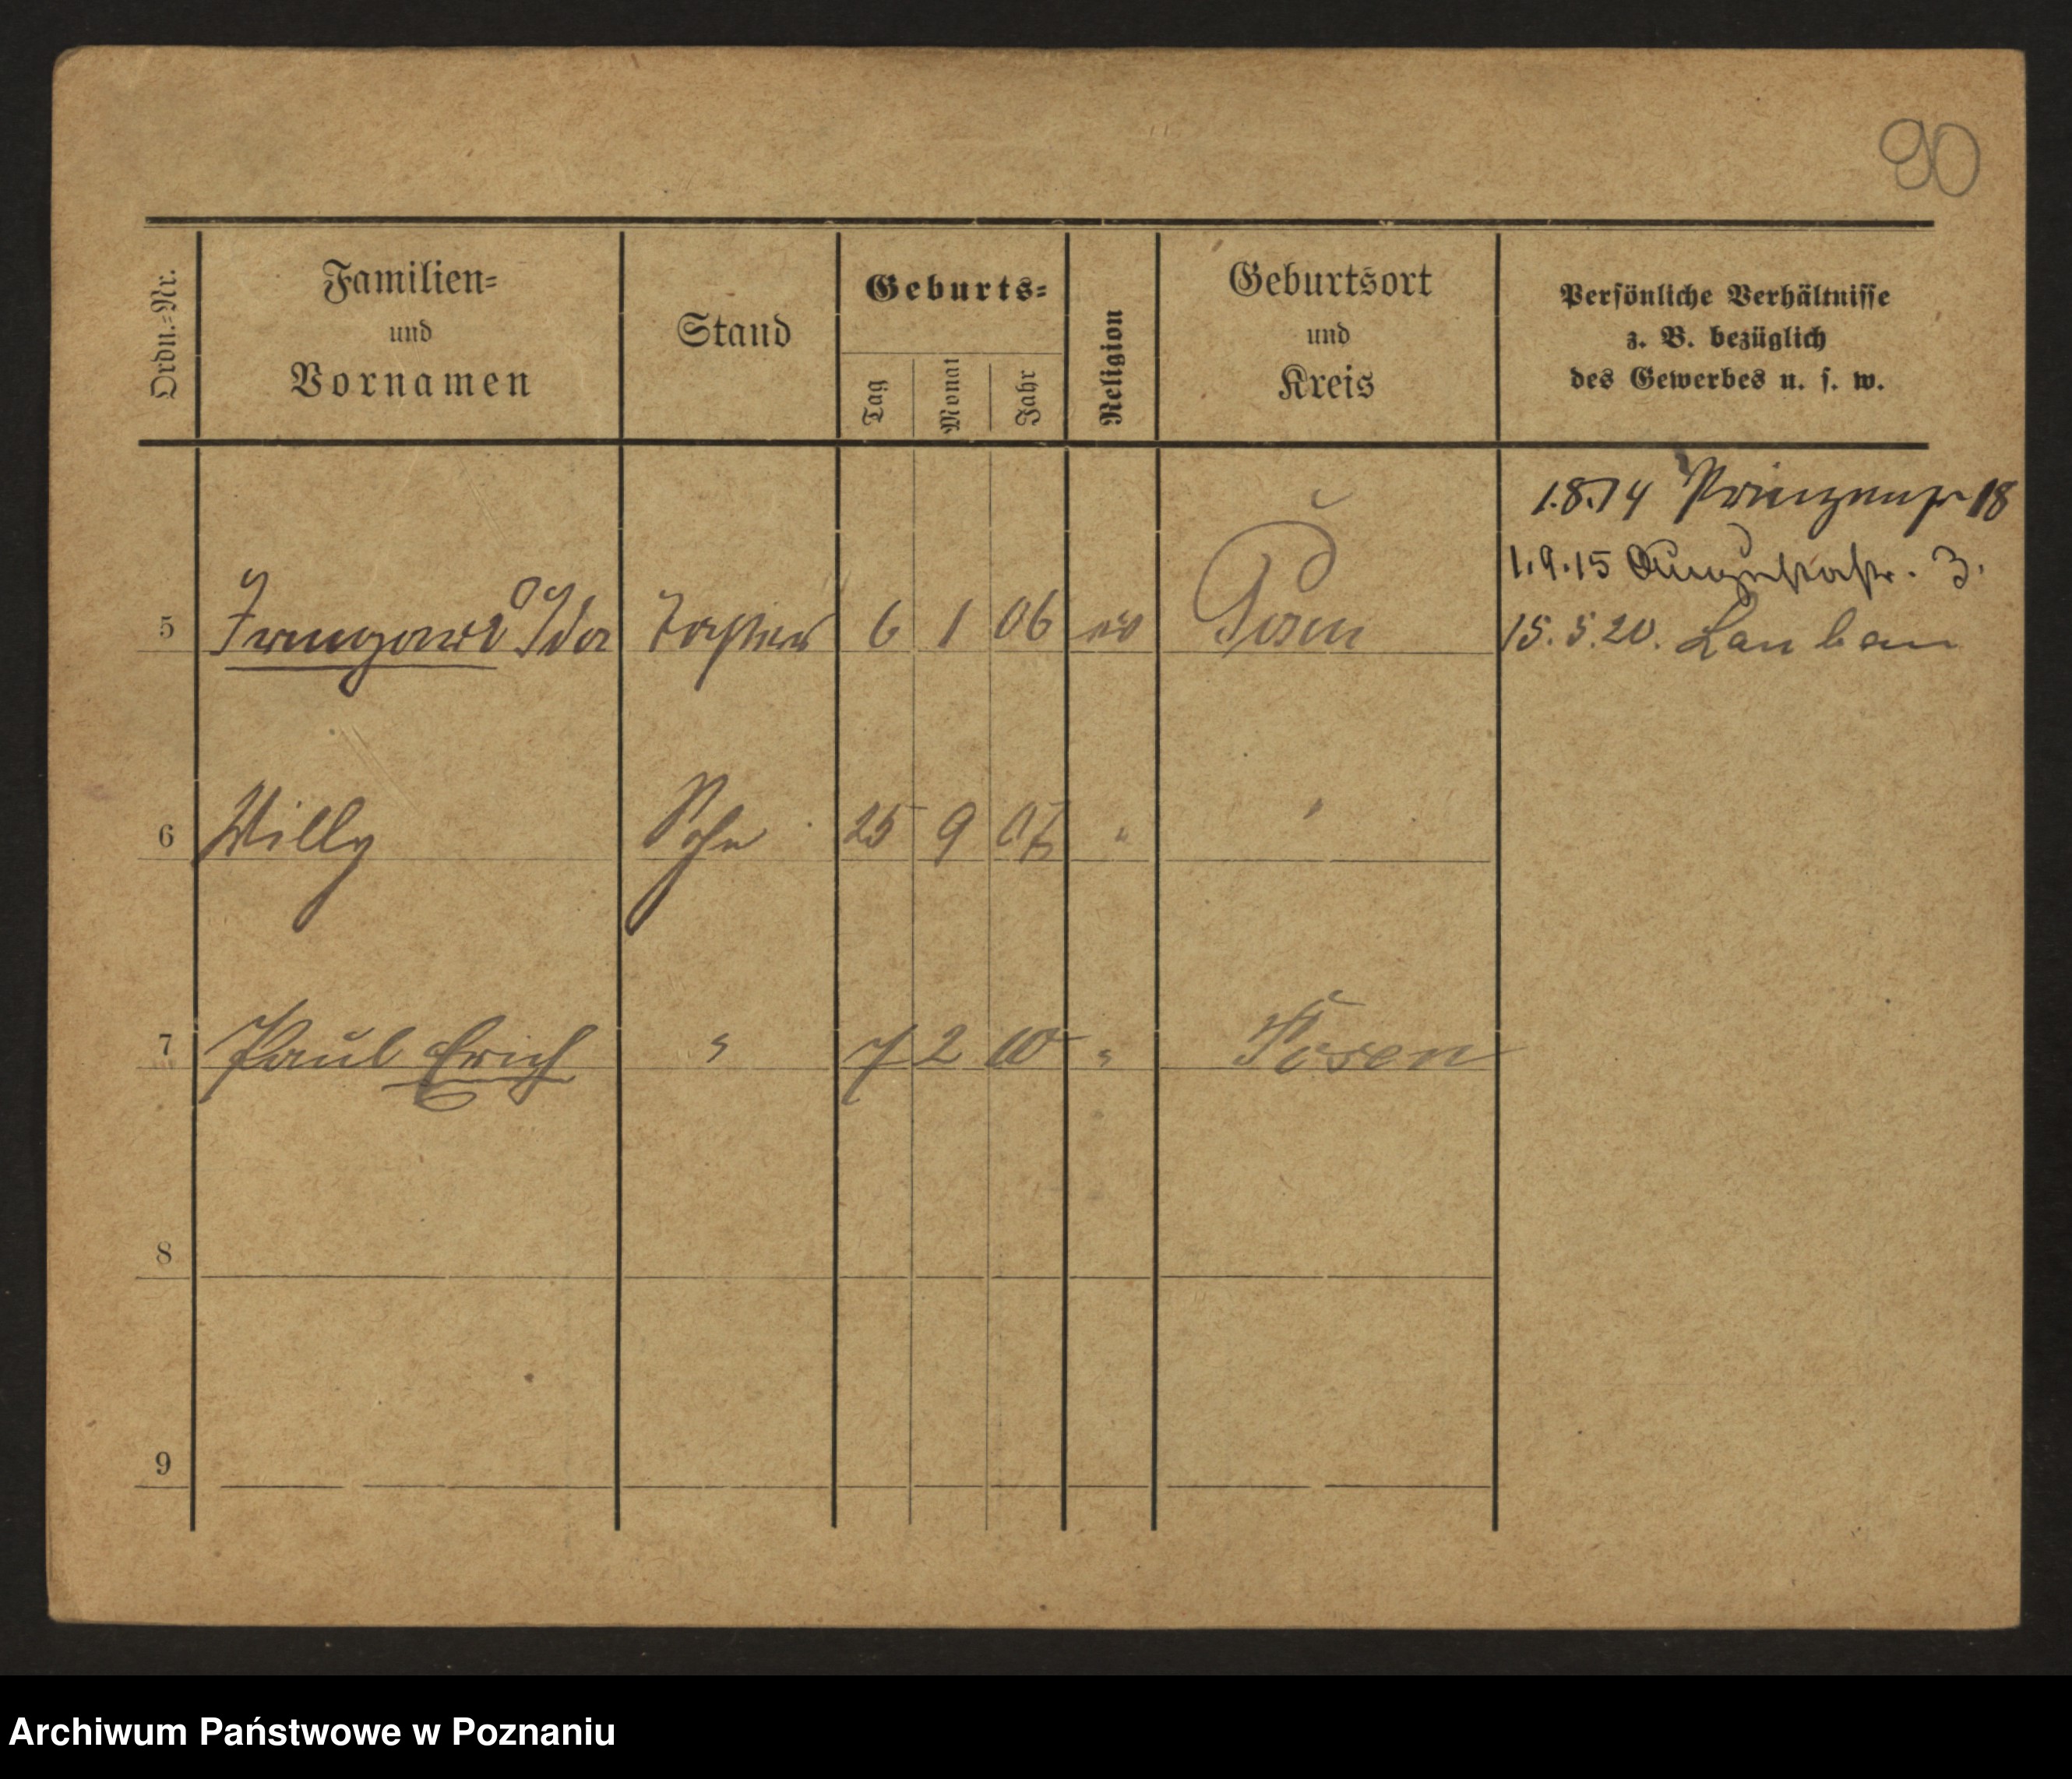 90
Ordn.-Nr.
Familien-
und
Vornamen
Stand
Geburts-
Tag
Monat
Jahr
Religion
Geburtsort
und
Kreis
Persönliche Verhältnisse
z. B. bezüglich
des Gewerbes u. s. w.
1.8.14 Prinzenstr 18
1.9.15 Augustastr. 3.
5 Irmgard Ida Tochter 6 1 06 ev Posen 15.5.20. Lauban
6 Willy Sohn 25 9 07 " "
7 Paul Erich " 7 2 10 " Posen
8
9
Archiwum Państwowe w Poznaniu